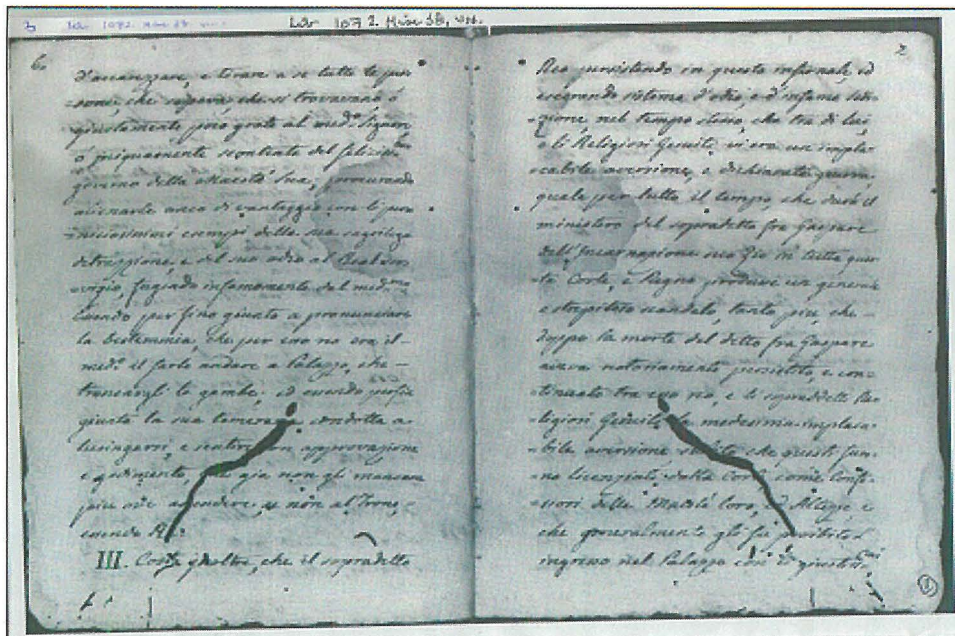 La 1072. Misc 58, vm.
6.
d'accarezzare, e tirare a se tutte le per-
sone, che sapeva che si trovavano ò
giustamente poco grate al med.º Signore,
ò iniquamente scontente del felicis.mo
governo della Maestà Sua, procurando
alienarle anco di vantaggio con li per-
niciosissimi esempi della sua sagrilega
detrazzione, e del suo odio al Real
per fino giunto a pronunciare
la bestemmia, che per esso no era il
med.º il farlo andare a Palazzo, che
troncargli le gambe; ed essendo perfin
giunta la sua condotta a
lusingarsi, e sentire con approvazione
e godimento, che già non gli mancava
più ove ascendere, se non al Trono,
essendo Rè.
III. Costa inoltre, che il sopradetto
7
Reo persistendo in questo infernale, ed
esegrando sistema d'odio, e d'infame
nel tempo stesso, che tra di lui,
e li Religiosi Gesuiti vi era un impla-
cabile aversione, e dichiarata guerra,
quale per tutto il tempo, che durò il
ministero del sopradetto fra Gaspare
dell'Incarnazione suo Zio in tutta ques-
ta Corte, e Regno produsse un generale
e strepitoso scandalo, tanto più, che
doppo la morte del detto fra Gaspare
aveva notoriamente persistito, e con-
tinuato tra esso reo, e li sopraddetti Re-
ligiosi Gesuiti la medesima implaca-
bile aversione che questi furo-
no licenziati dalla Corte come Confes-
sori delle Maestà loro, ed Altezze, e
che generalmente gli fù proibito l'
ingresso nel Palazzo con giustiss.mi